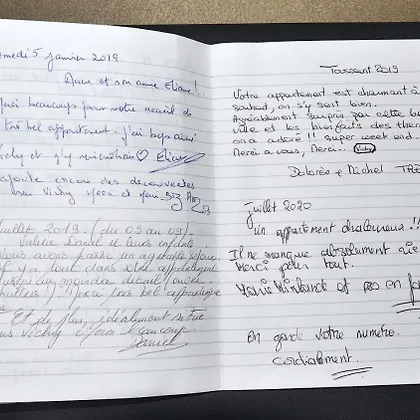 amedi 5 janvier 2019.
Anne et son amie Eliane !
beaucoup pour votre accueil de
très bel appartement. j'ai bcp aimé
Vichy et y reviendrai ♡ Eliane
encore des découvertes
Vichy
juillet 2019. (du 05 au 09).
Valérie Daniel et leurs enfants
Vous avons passé un agréable séjour
il y a tout dans votre appartement
jusqu'au moindre détail
Merci très bel appartement
Et de plus, idéalement situé
Vichy Merci Beaucoup
Daniel
Toussaint 2019
Votre appartement est charmant à
souhait, on s'y sent bien.
Agréablement surpris par cette be
ville et les bienfaits des ther
on a adoré ! super week end.
Merci à vous, Merci.. Vichy
Dolorès & Michel TR
juillet 2020
Un appartement chaleureux !!
Il ne manque absolument rie
Merci pour tout.
et en fa
On garde votre numéro.
Cordialement.